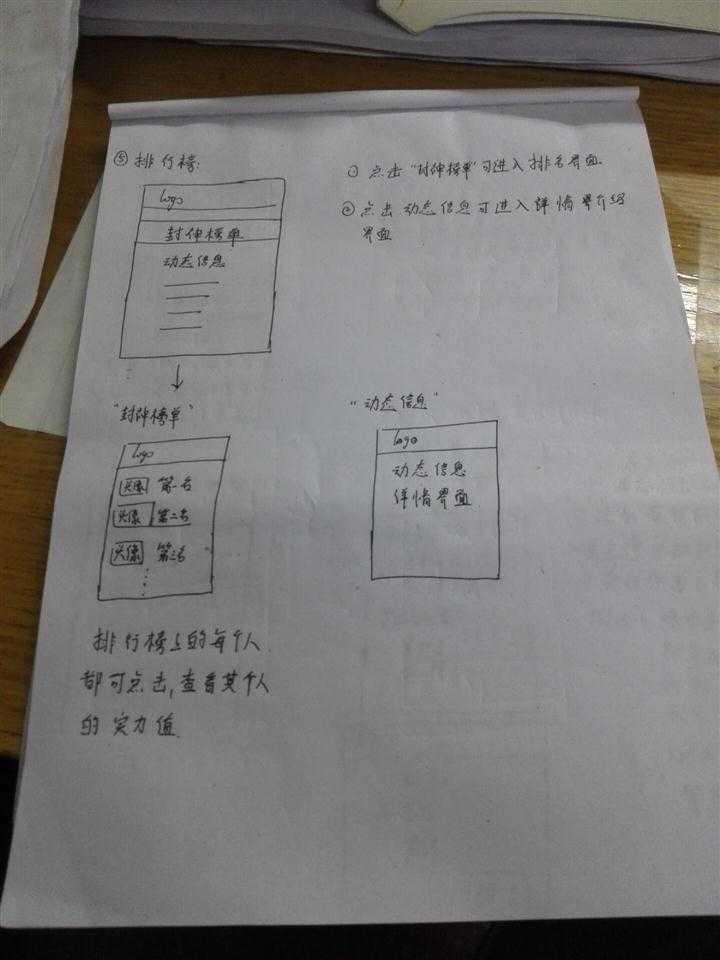 ⑤ 排行榜:
logo
封伸榜单
动态信息
① 点击"封伸榜单"可进入排名界面.
② 点击动态信息可进入详情界介绍
界面
"封伸榜单"
logo
头像 第一名
头像 第二名
头像 第三名
排行榜上的每个人
都可点击,查看其个人
的实力值.
"动态信息"
logo
动态信息
详情界面